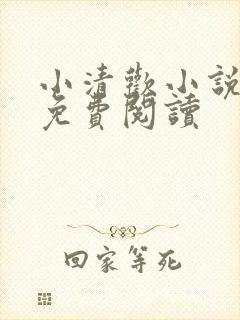 小清歡小說
免費閱讀
回家等死